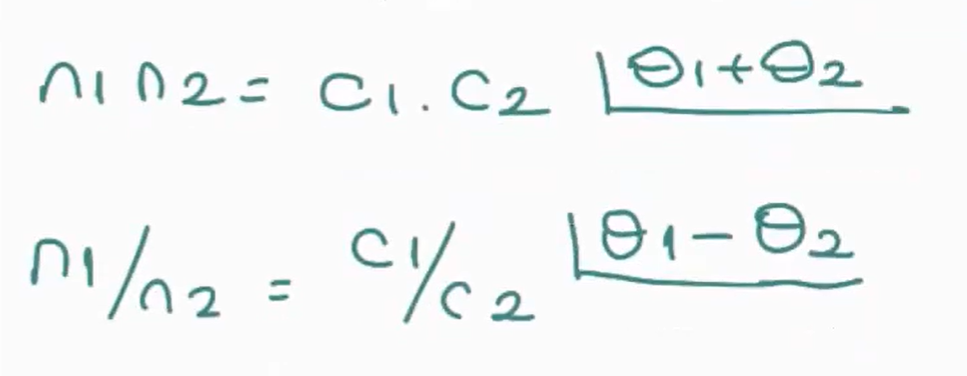 n1 n2 = c1 . c2 ∠θ1+θ2
n1/n2 = c1/c2 ∠θ1-θ2